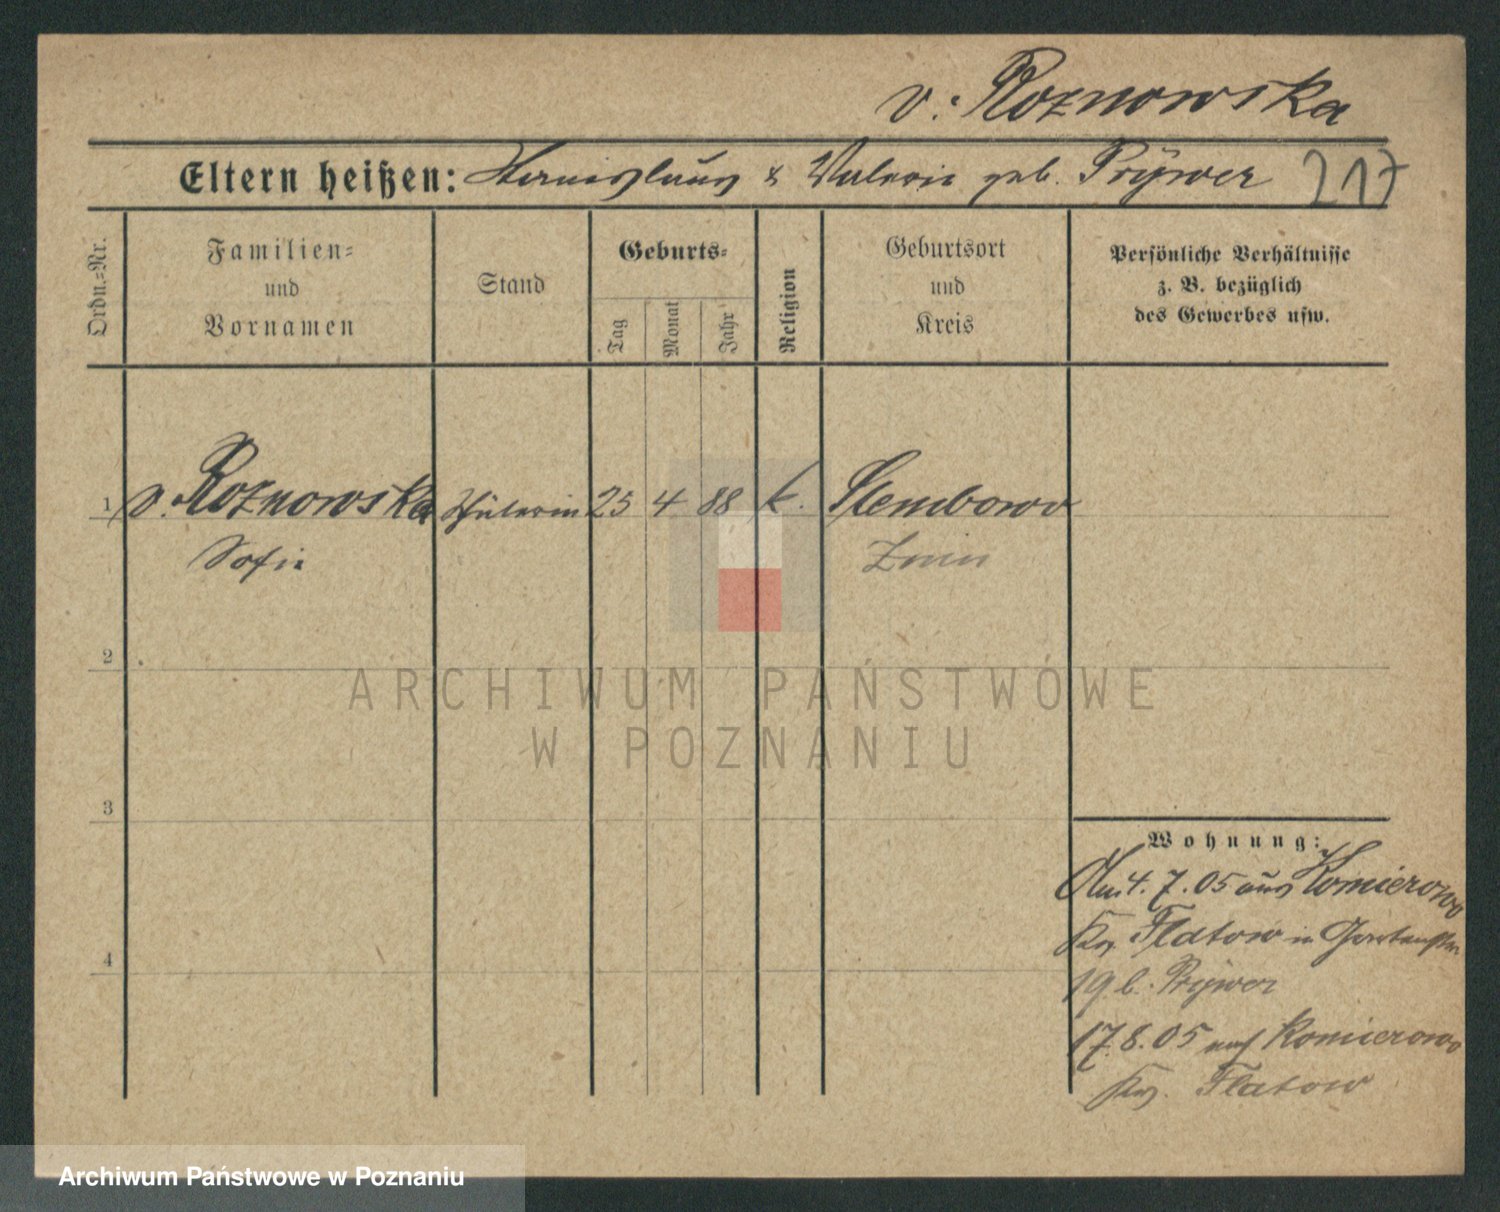 v. Roznowska
Eltern heißen: Stanislaus & Valerie geb. Prÿwer 217
Ordn.-Nr.
Familien-
und
Vornamen
Stand
Geburts-
Tag
Monat
Jahr
Religion
Geburtsort
und
Kreis
Persönliche Verhältnisse
z. B. bezüglich
des Gewerbes usw.
1 v. Roznowska Schülerin 25 4 88 k. Slembowo
Sofie Znin
2
ARCHIWUM PAŃSTWOWE
W POZNANIU
3
Wohnung:
Am 4. 7. 05 aus Komierowo
Krs. Flatow in
4
19 b. Prÿwer
17.8.05 nach Komierowo
Krs. Flatow
Archiwum Państwowe w Poznaniu